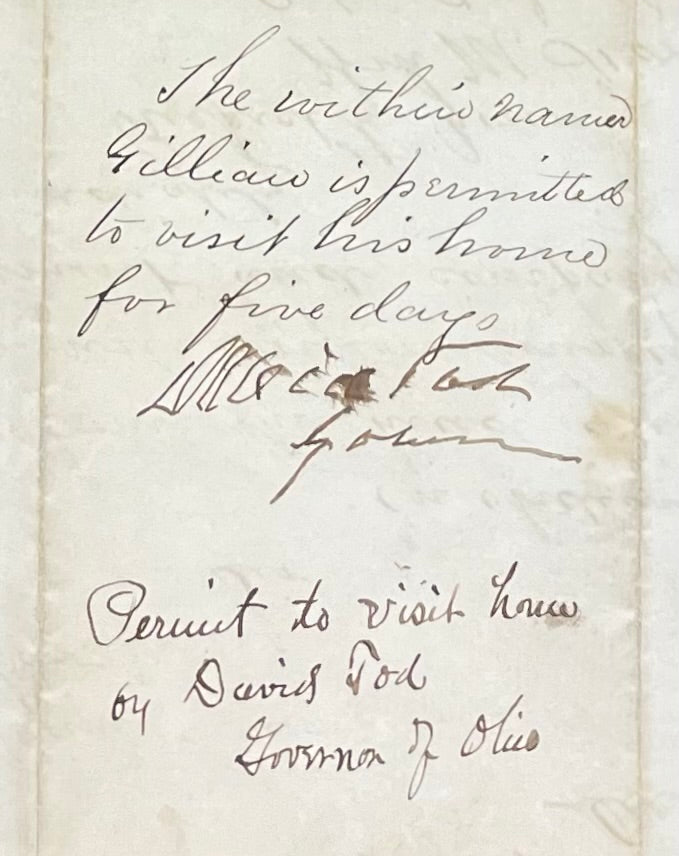 The within named
Gilliam is permitted
to visit his home
for five days
David Tod
Govern
Permit to visit home
by David Tod
Governor of Ohio